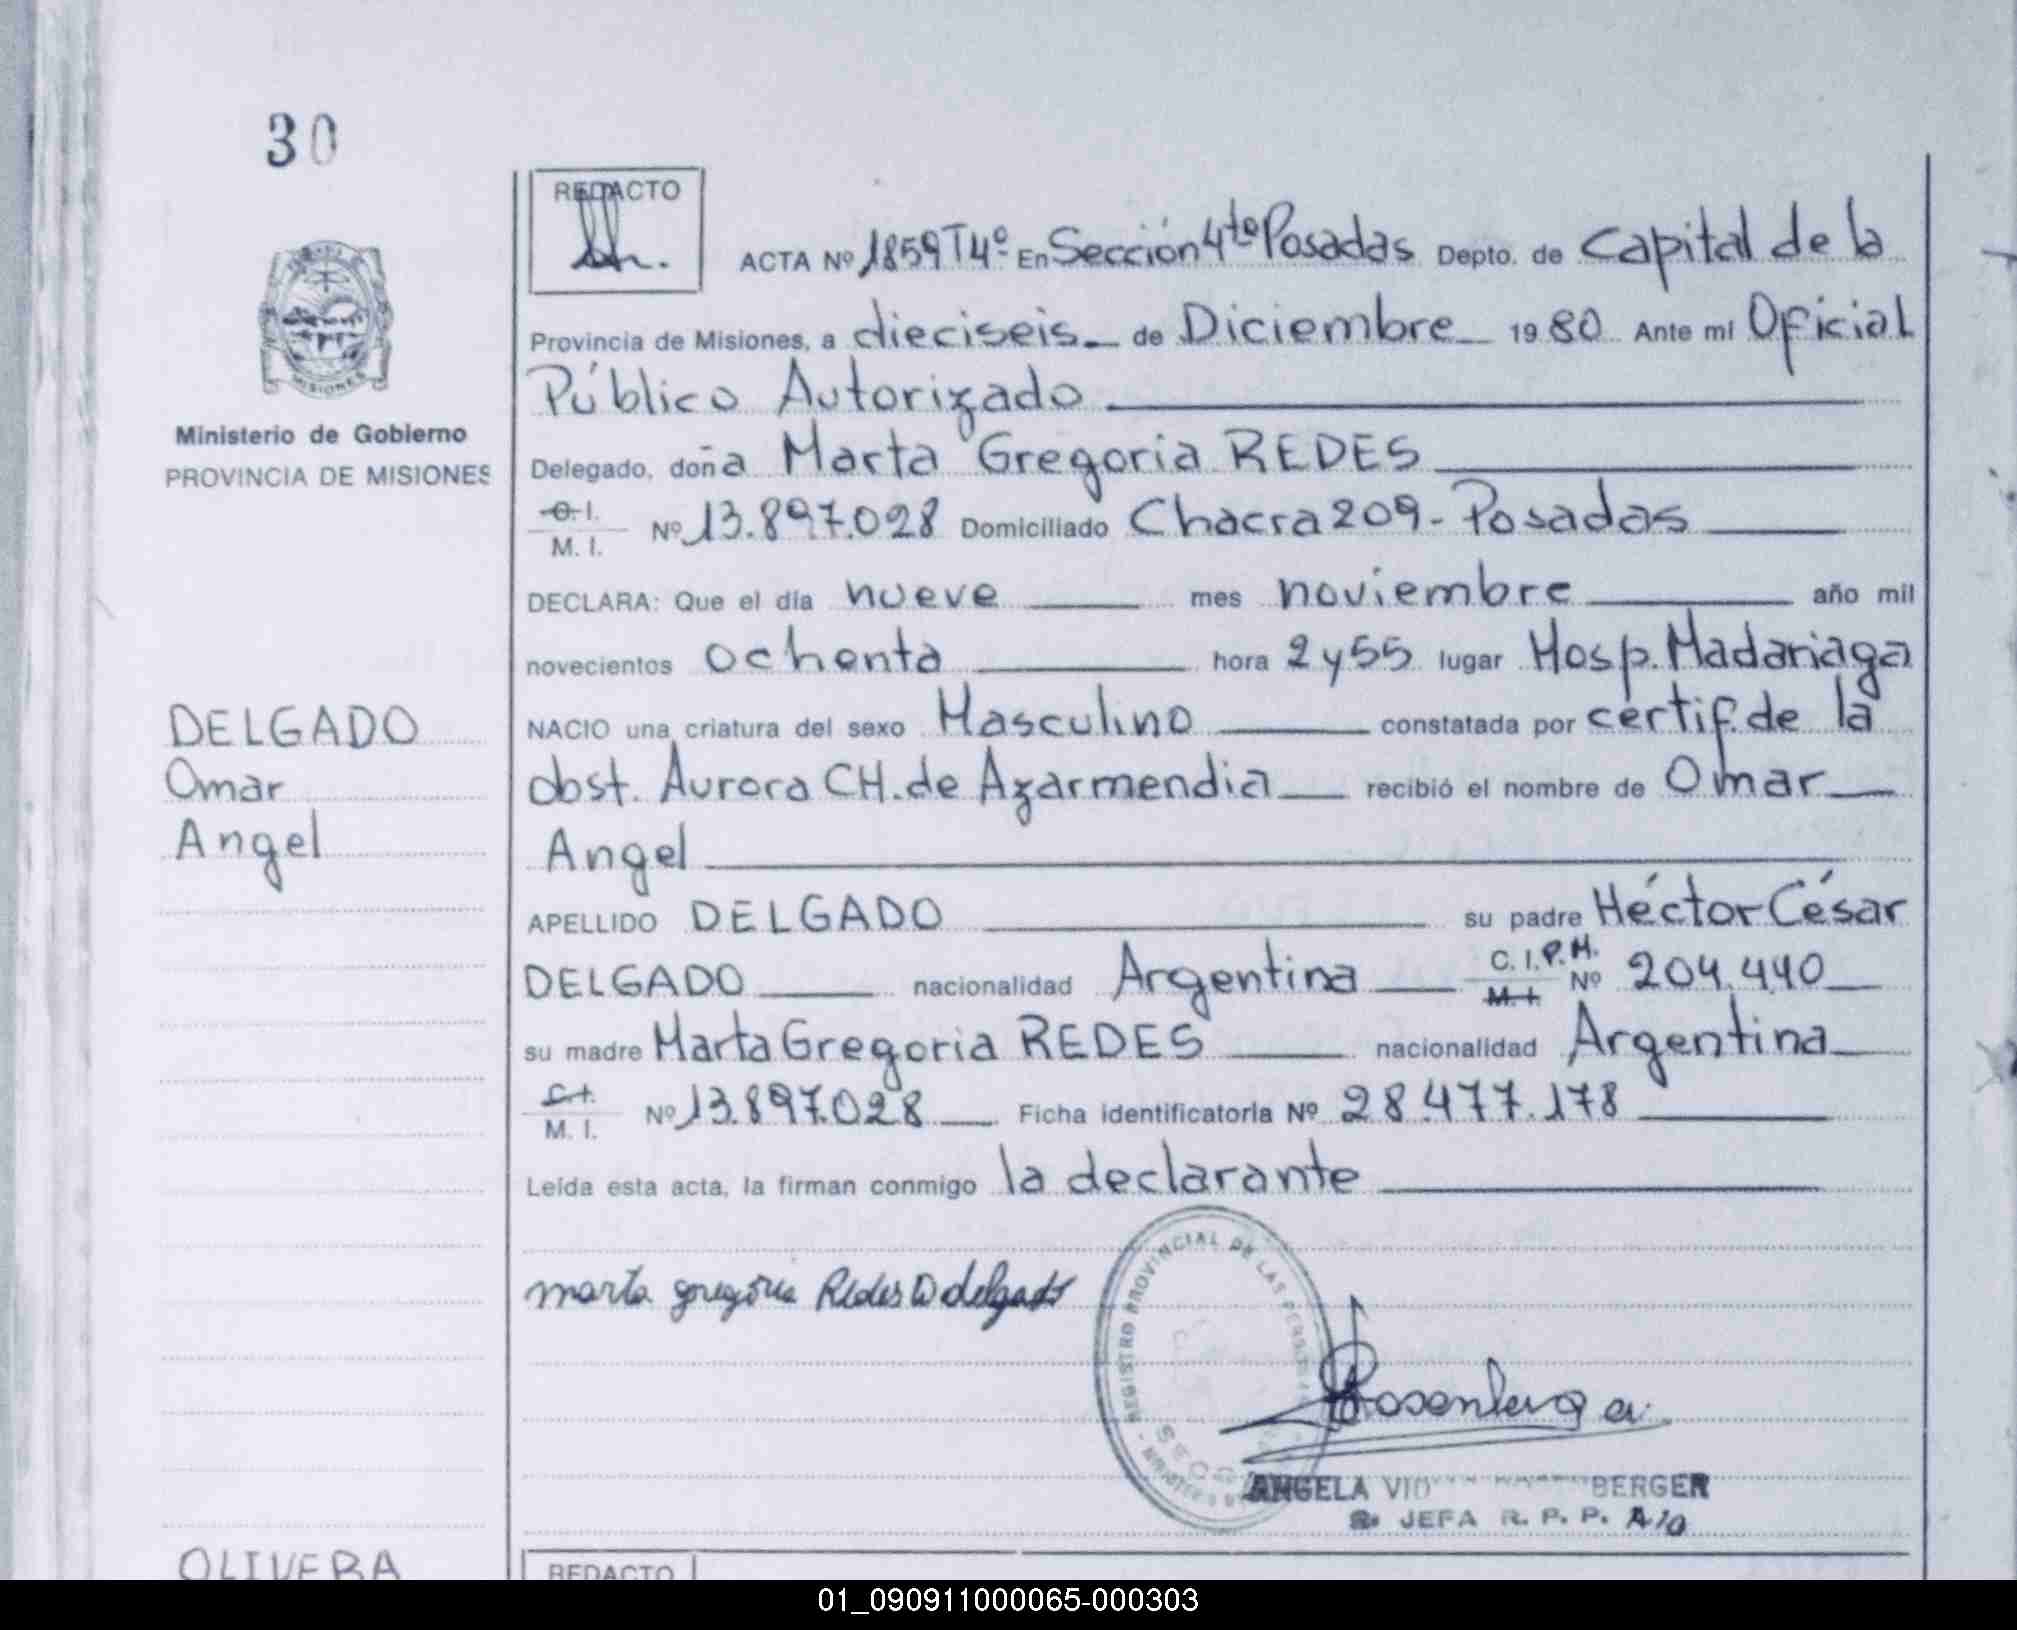 30
REDACTO
ACTA Nº 1859 Tº4 En Sección 4ta Posadas Depto. de Capital de la
Provincia de Misiones, a dieciseis de Diciembre 1980 Ante mí Oficial
Público Autorizado
Ministerio de Gobierno
PROVINCIA DE MISIONES
Delegado, doña Marta Gregoria REDES
C. I.
M. I. Nº 13.897.028 Domiciliado Chacra 209 - Posadas
DECLARA: Que el día nueve mes noviembre año mil
novecientos ochenta hora 2 y 55 lugar Hosp. Madariaga
DELGADO
Omar
Angel
NACIO una criatura del sexo Masculino constatada por certif. de la
obst. Aurora CH. de Azarmendia recibió el nombre de Omar
Angel
APELLIDO DELGADO su padre Héctor César
DELGADO nacionalidad Argentina C. I. P. M. Nº 204.440
M. I.
su madre Marta Gregoria REDES nacionalidad Argentina
C. I.
M. I. Nº 13.897.028 Ficha identificatoria Nº 28.477.178
Leída esta acta, la firman conmigo la declarante
marta gregoria Redes D delgado
REGISTRO PROVINCIAL DE LAS PERSONAS
ANGELA BERGER
JEFA R. P. P.
OLIVERA
REDACTO
01_090911000065-000303